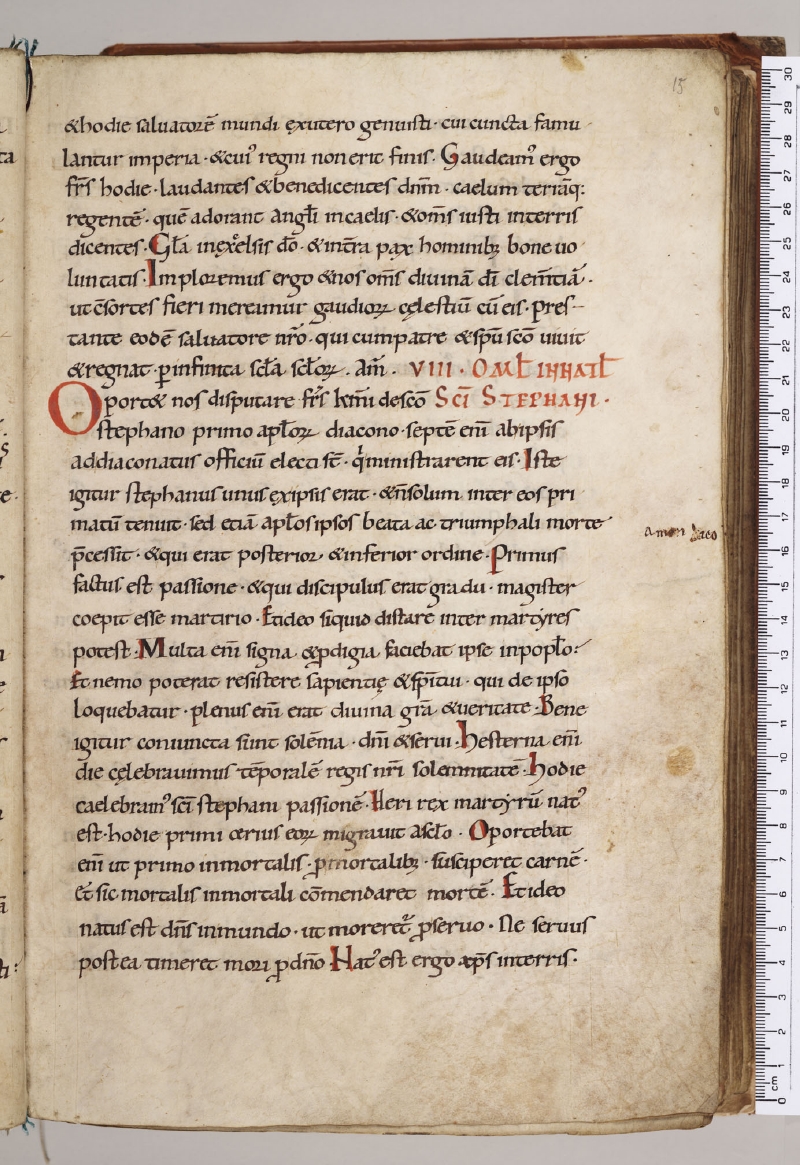 15
&hodie saluatorē mundi exutero genuisti· cui cuncta famu
lantur imperia· &cuiꝰ regni non erit finis. Gaudeamꝰ ergo
fr̄s hodie· laudantes &benedicentes dn̄m· caelum terrāq;
regentē· quē adorant angl̄i incaelis· &om̄s iusti interris
dicentes· Gl̄a inexcelsis dō· &intr̄a pax hominibꝫ bone uo
luntatis· Imploremus ergo &nos om̄s diuinā dī clem̄tiā·
ut c̄sortes fieri mereamur gaudioꝝ cęlestiū cū eis· pres
tante eodē saluatore nr̄o· qui cumpatre &sp̄u sc̄o uiuit
&regnat· ꝑ infinita sc̄la sc̄loꝝ. Am̄. VIII· OML̄ INNATL̄
Oport& nos disputare fr̄s km̄i descō SCĪ STEPHANI·
stephano primo apl̄oꝝ diacono· septē eni̅ abipsis
addiaconatus officiū electi st̄· q̇ministrarent eis· Iste
igitur stephanus unus exipsis erat· &n̄solum inter eos pri
matū tenuit· sed etiā apl̄os ipsos beata ac triumphali morte
p̄cessit· &qui erat posterior, &inferior ordine· Primus
factus est passione· &qui discipulus erat gradu· magister
coepit esse martirio· Etideo siquid distare inter martyres
potest· Multa eni̅ signa, &ꝓdigia, faciebat ipse inpopl̄o:
Et nemo poterat resistere sapientię &sp̄itui· qui de ipso
loquebatur· plenus eni̅ erat diuina gr̄a &ueritate· Bene
igitur coniuncta sunt solēnia· dn̄i &serui· hesterna eni̅
die cęlebrauimus tēporalē regis nr̄i solemnitatē· hodie
caelebramꝰ sc̄i stephani passionē· Heri rex martyrū natꝰ
est· hodie primicerius eoꝝ migrauit asc̄lo· Oportebat
eni̅ ut primo inmortalis· ꝓmortalibꝫ· susciperet carnē·
et sic mortalis inmortali cōmendaret mortē· Etideo
natus est dn̄s inmundo· ut moreret᷑ ꝓseruo· Ne seruus
postea timeret mori ꝓdn̄o· Natꝰ est ergo xp̄s interris·